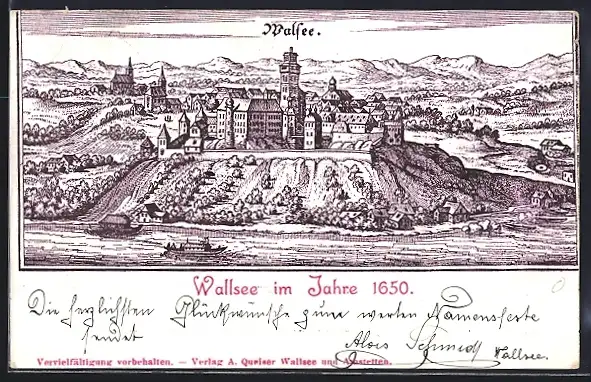 Walsee.
Wallsee im Jahre 1650.
Die herzlichsten Glückwünsche zum werten Namensfeste
sendet Alois Schmidt Wallsee.
Vervielfältigung vorbehalten. — Verlag A. Queiser Wallsee und Amstetten.